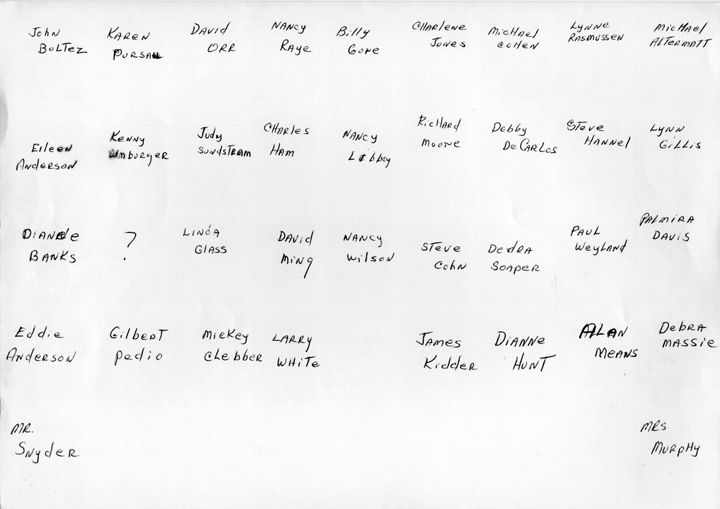 John Karen David Nancy Billy Charlene Michael Lynne Michael
Boltez Pursau Orr Raye Gore Jones Cohen Rasmussen Altermatt
Eileen Kenny Judy Charles Nancy Richard Debby Steve Lynn
Anderson Sundstram Ham Moore DeCarlos Hannel Gillis
Dianne ? Linda David Nancy Steve Dedra Paul Palmira
Banks Glass Ming Wilson Cohn Soaper Weyland Davis
Eddie Gilbert Mickey Larry James Dianne Alan Debra
Anderson Pedio Clebber White Kidder Hunt Means Massie
Mr. Mrs
Snyder Murphy